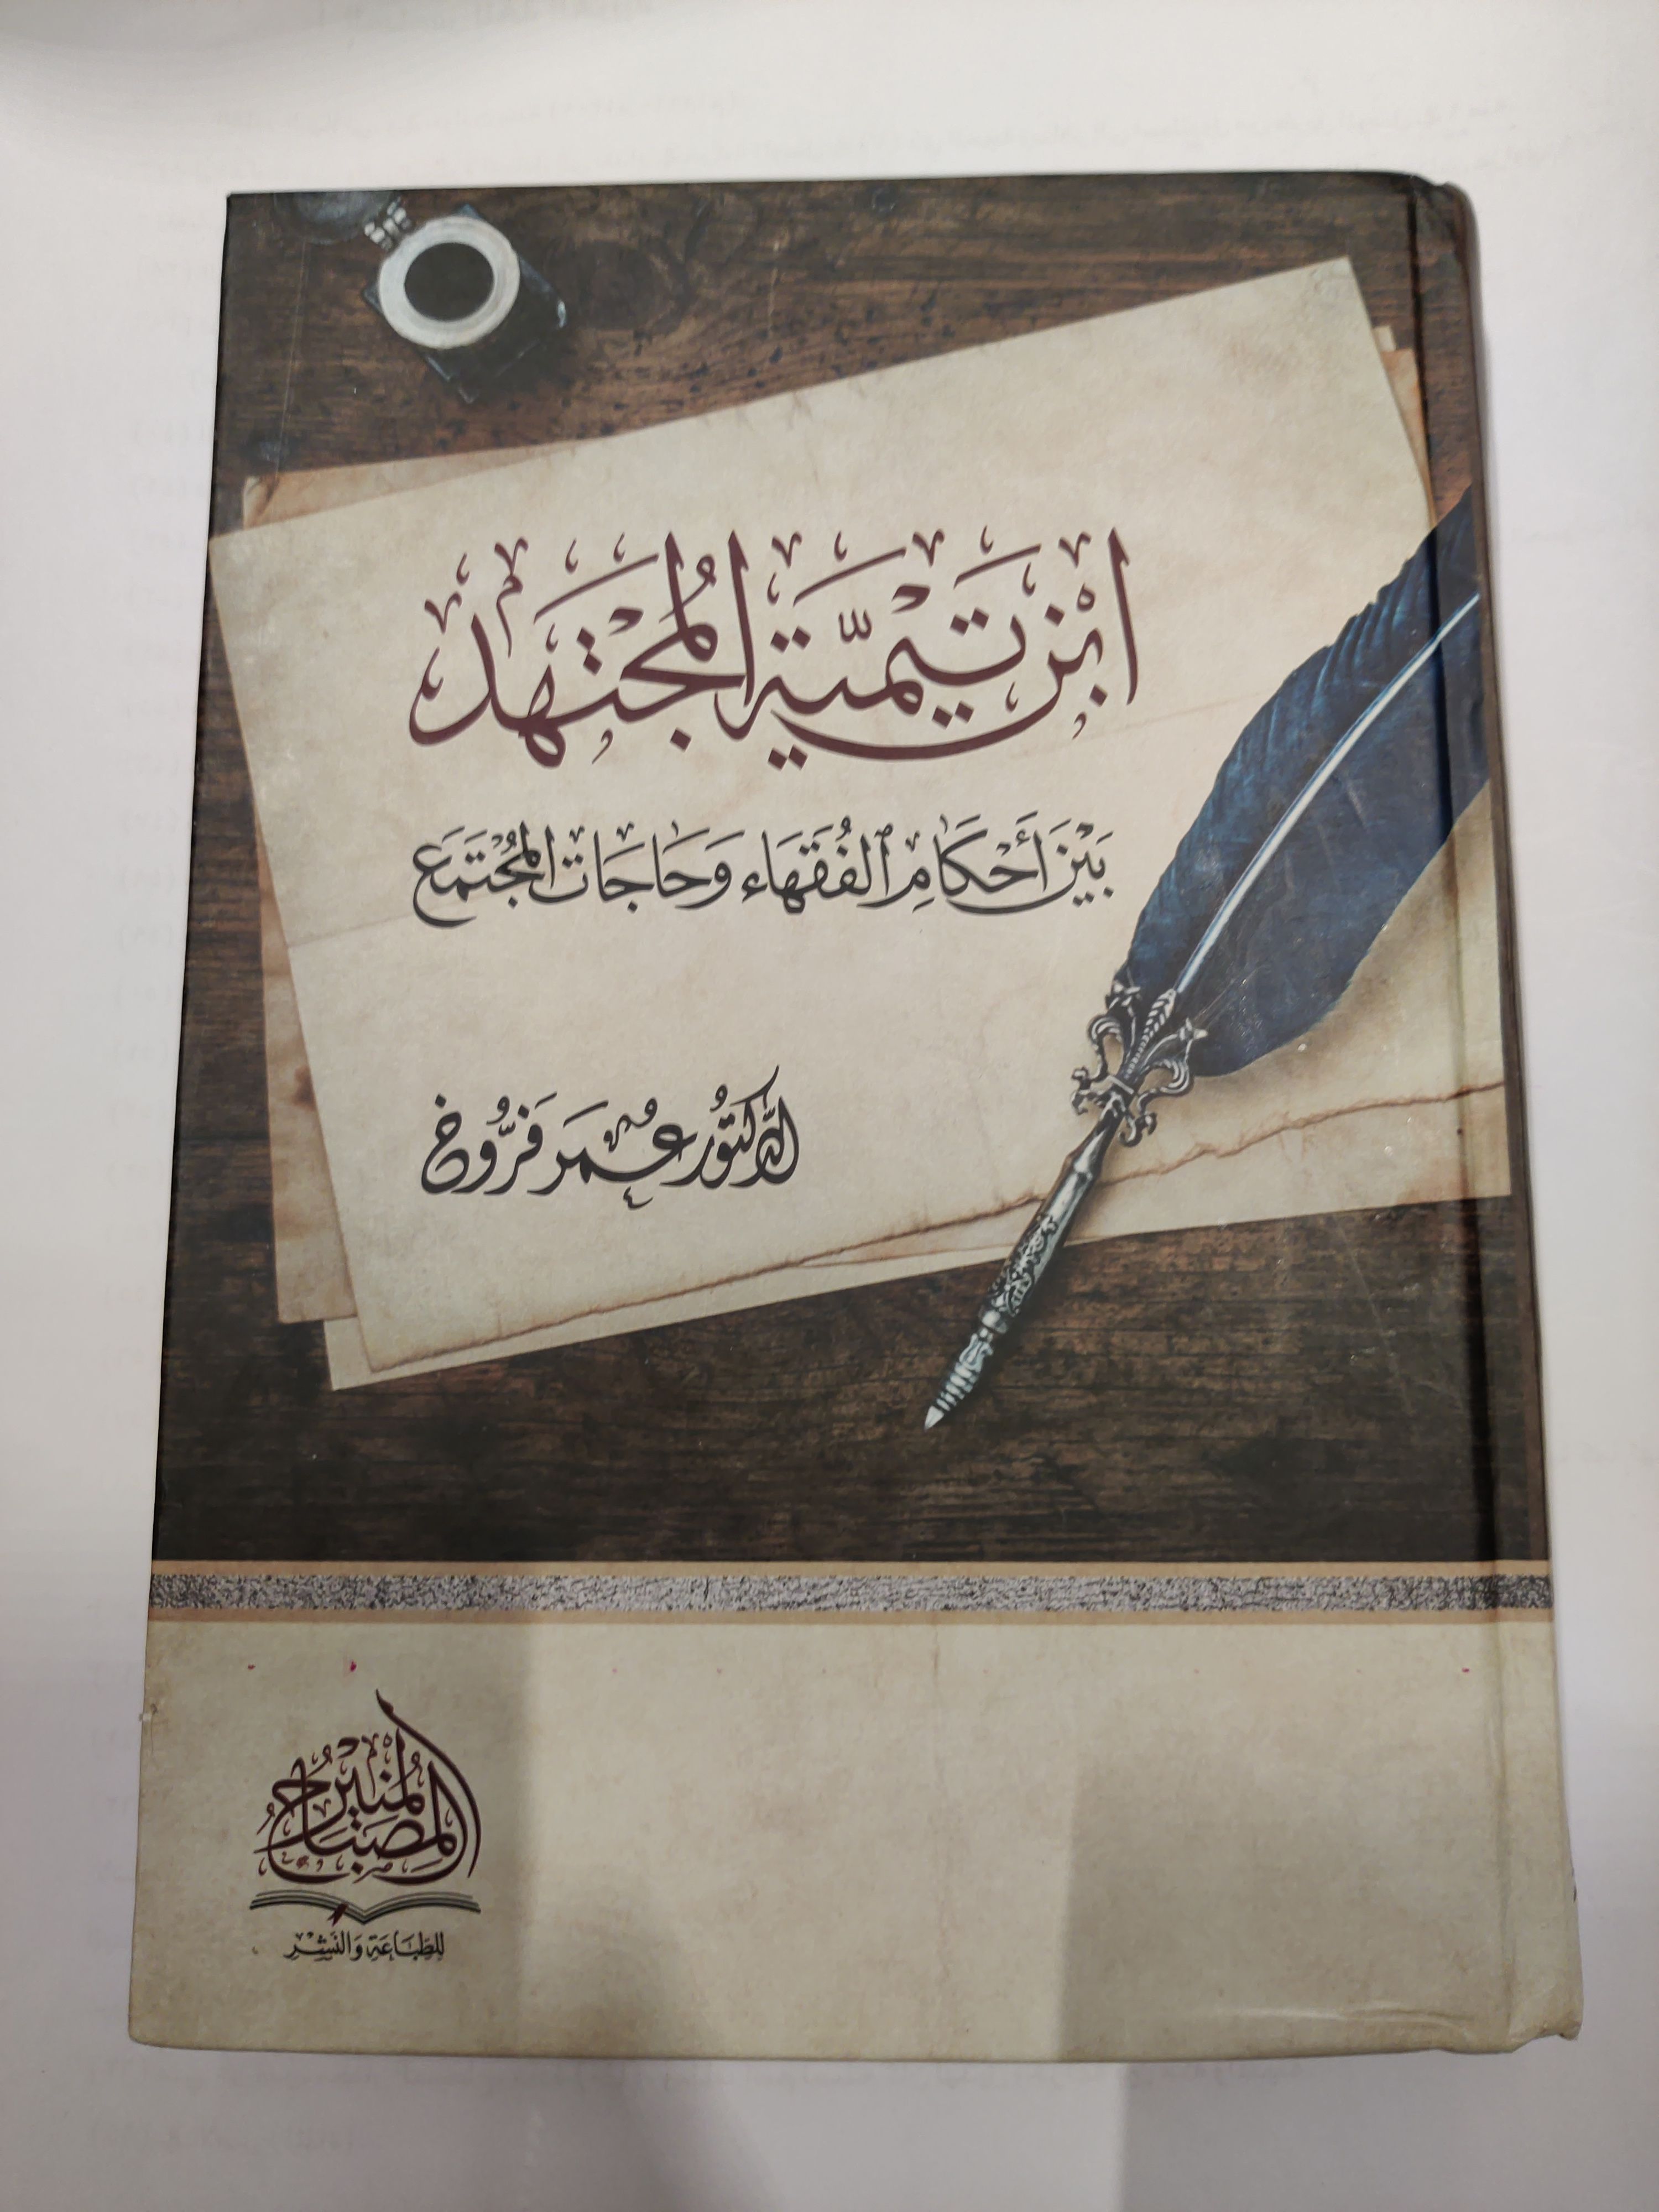 ابْن تَيْميَّة المُجْتَهِد
بَيْنَ أَحْكَامِ ٱلفُقَهَاء وَحَاجَات المُجْتَمَع
الدّكتُور عُمَر فَرُّوخ
المصباح المنير
للطباعة والنشر